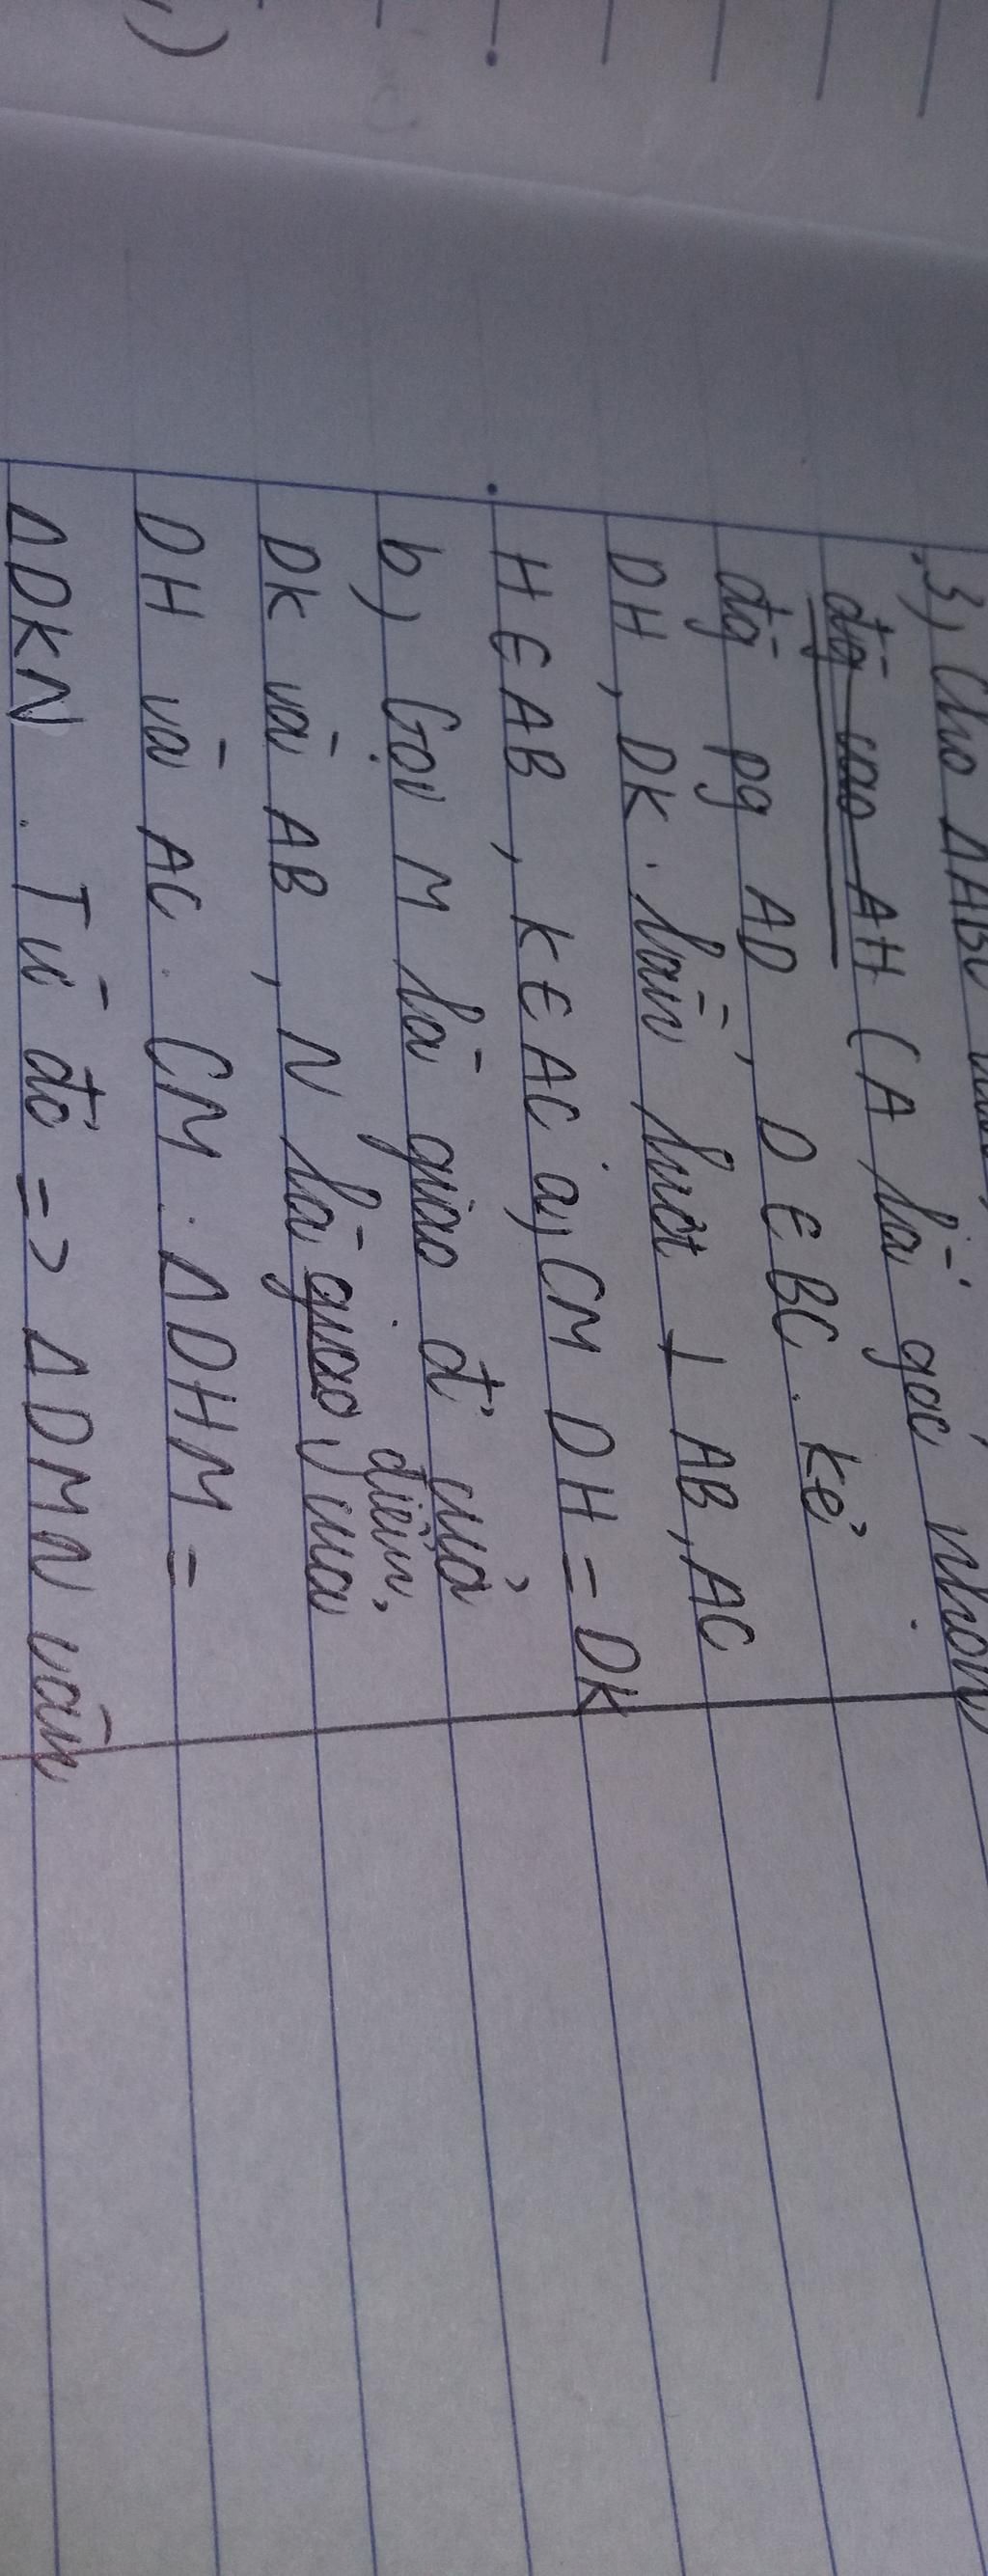 3) Cho ΔABC
đg cao AH (A là góc nhọn
đg pg AD, D ∈ BC. kẻ
DH, DK. lần lượt ⊥ AB, AC
H ∈ AB, K ∈ AC a) CM DH = DK
b) Gọi M là giao đ' của
điểm
DK và AB, N là giao của
DH và AC. CM: ΔDHM =
ΔDKN. Từ đó => ΔDMN cân